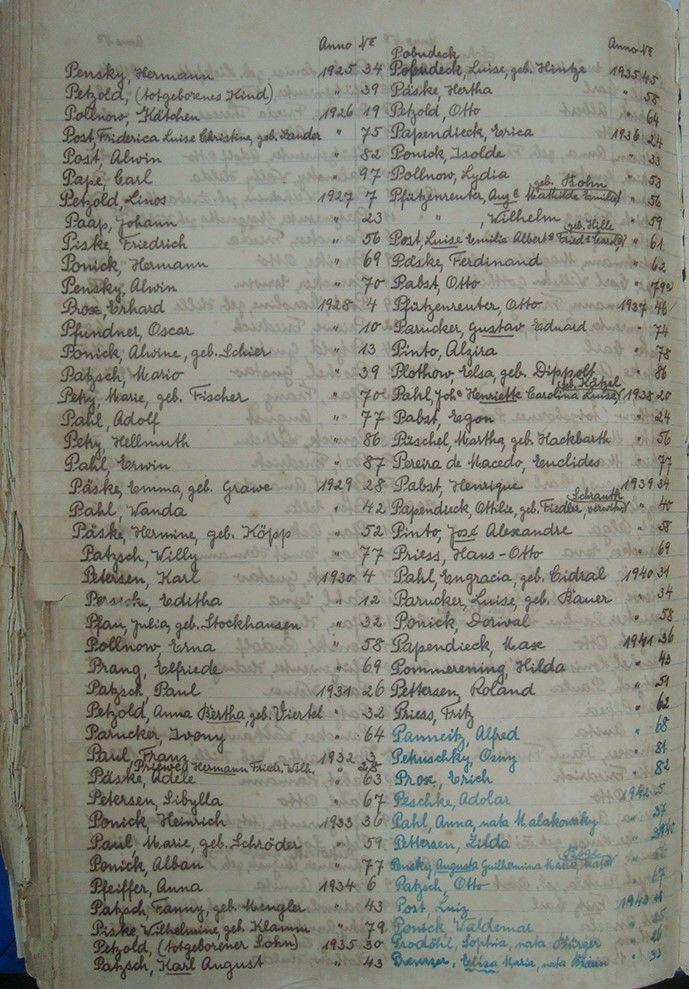 Anno №
Pensky, Hermann 1925 34
Petzold, (totgeborenes Kind) " 39
Pollnow, Kätchen 1926 19
Post, Friderica Luise Christine, geb. Zander " 75
Post, Alwin " 82
Pape, Carl " 97
Petzold, Linos 1927 7
Paap, Johann " 23
Piske, Friedrich " 56
Ponick, Hermann " 69
Pensky, Alwin " 70
Prox, Erhard 1928 4
Pfundner, Oscar " 10
Ponick, Alwine, geb. Schier " 13
Patzsch, Mario " 39
Petry, Marie, geb. Fischer " 70
Pahl, Adolf " 77
Petry, Hellmuth " 86
Pahl, Erwin " 87
Päske, Emma, geb. Grawe 1929 28
Pahl, Wanda " 42
Päske, Hermine, geb. Köpp " 52
Patzsch, Willy " 77
Petersen, Karl 1930 4
Persicke, Editha " 12
Pfau, Julia, geb. Stockhausen " 32
Pollnow, Erna " 58
Prang, Elfriede " 69
Patzsch, Paul 1931 26
Petzold, Anna Bertha, geb. Viertel " 32
Parucker, Ivony " 64
Paul, Franz 1932 3
Priewe, Hermann Friedr. Wilh. " 28
Päske, Adele " 63
Petersen, Sibylla " 67
Ponick, Heinrich 1933 36
Paul, Marie, geb. Schröder " 59
Ponick, Alban " 77
Pfeiffer, Anna 1934 6
Patzsch, Fanny, geb. Mengler " 43
Piske, Wilhelmine, geb. Klamm " 79
Petzold, (totgeborener Sohn) 1935 30
Patzsch, Karl August " 43
Anno №
Pobudeck
Luise, geb. Hintze 1935 45
Päske, Hertha " 58
Petzold, Otto " 64
Papendieck, Erica 1936 24
Ponick, Isolde " 33
Pollnow, Lydia " 53
geb. Bohn
Pfützenreuter, Aug. Mathilde Emilie " 56
" , Wilhelm " 59
geb. Hille
Post, Luise Emilie " 61
Päske, Ferdinand " 62
Pabst, Otto "
Pfützenreuter, Otto 1937 46
Parucker, Gustav Eduard " 74
Pinto, Alzira " 78
Plothow, Elsa, geb. Dippolt " 86
geb. Kätzel
Pahl, Joh. Henriette Carolina Luise 1938 20
Pabst, Egon " 24
Päschel, Martha, geb. Hackbarth " 56
Pereira de Macedo, Euclides " 77
Pabst, Henrique 1939 34
Schrauth
Papendieck, Ottilie, geb. Fiedler, verwitw. " 40
Pinto, José Alexandre " 58
Priess, Hans-Otto " 69
Pahl, Engracia, geb. Cidral 1940 31
Parucker, Luise, geb. Bauer " 34
Ponick, Dorival " 58
Papendieck, Max 1941 36
Pommerening, Hilda " 43
Pettersen, Roland " 51
Priess, Fritz " 62
Panneitz, Alfred " 68
Petruschky, Osny " 81
Prox, Erich " 82
Peschke, Adolar 1942 5
Pahl, Anna, nata Malakowsky " 37
Pettersen, Zilda "
Augusta Guilhermina Maria, nata
Patzsch, Otto " 67
Post, Luiz 1943
Ponick, Waldemar "
Prodöhl, Sophia, nata Bürger "
Elisa Maria, nata Braun " 33